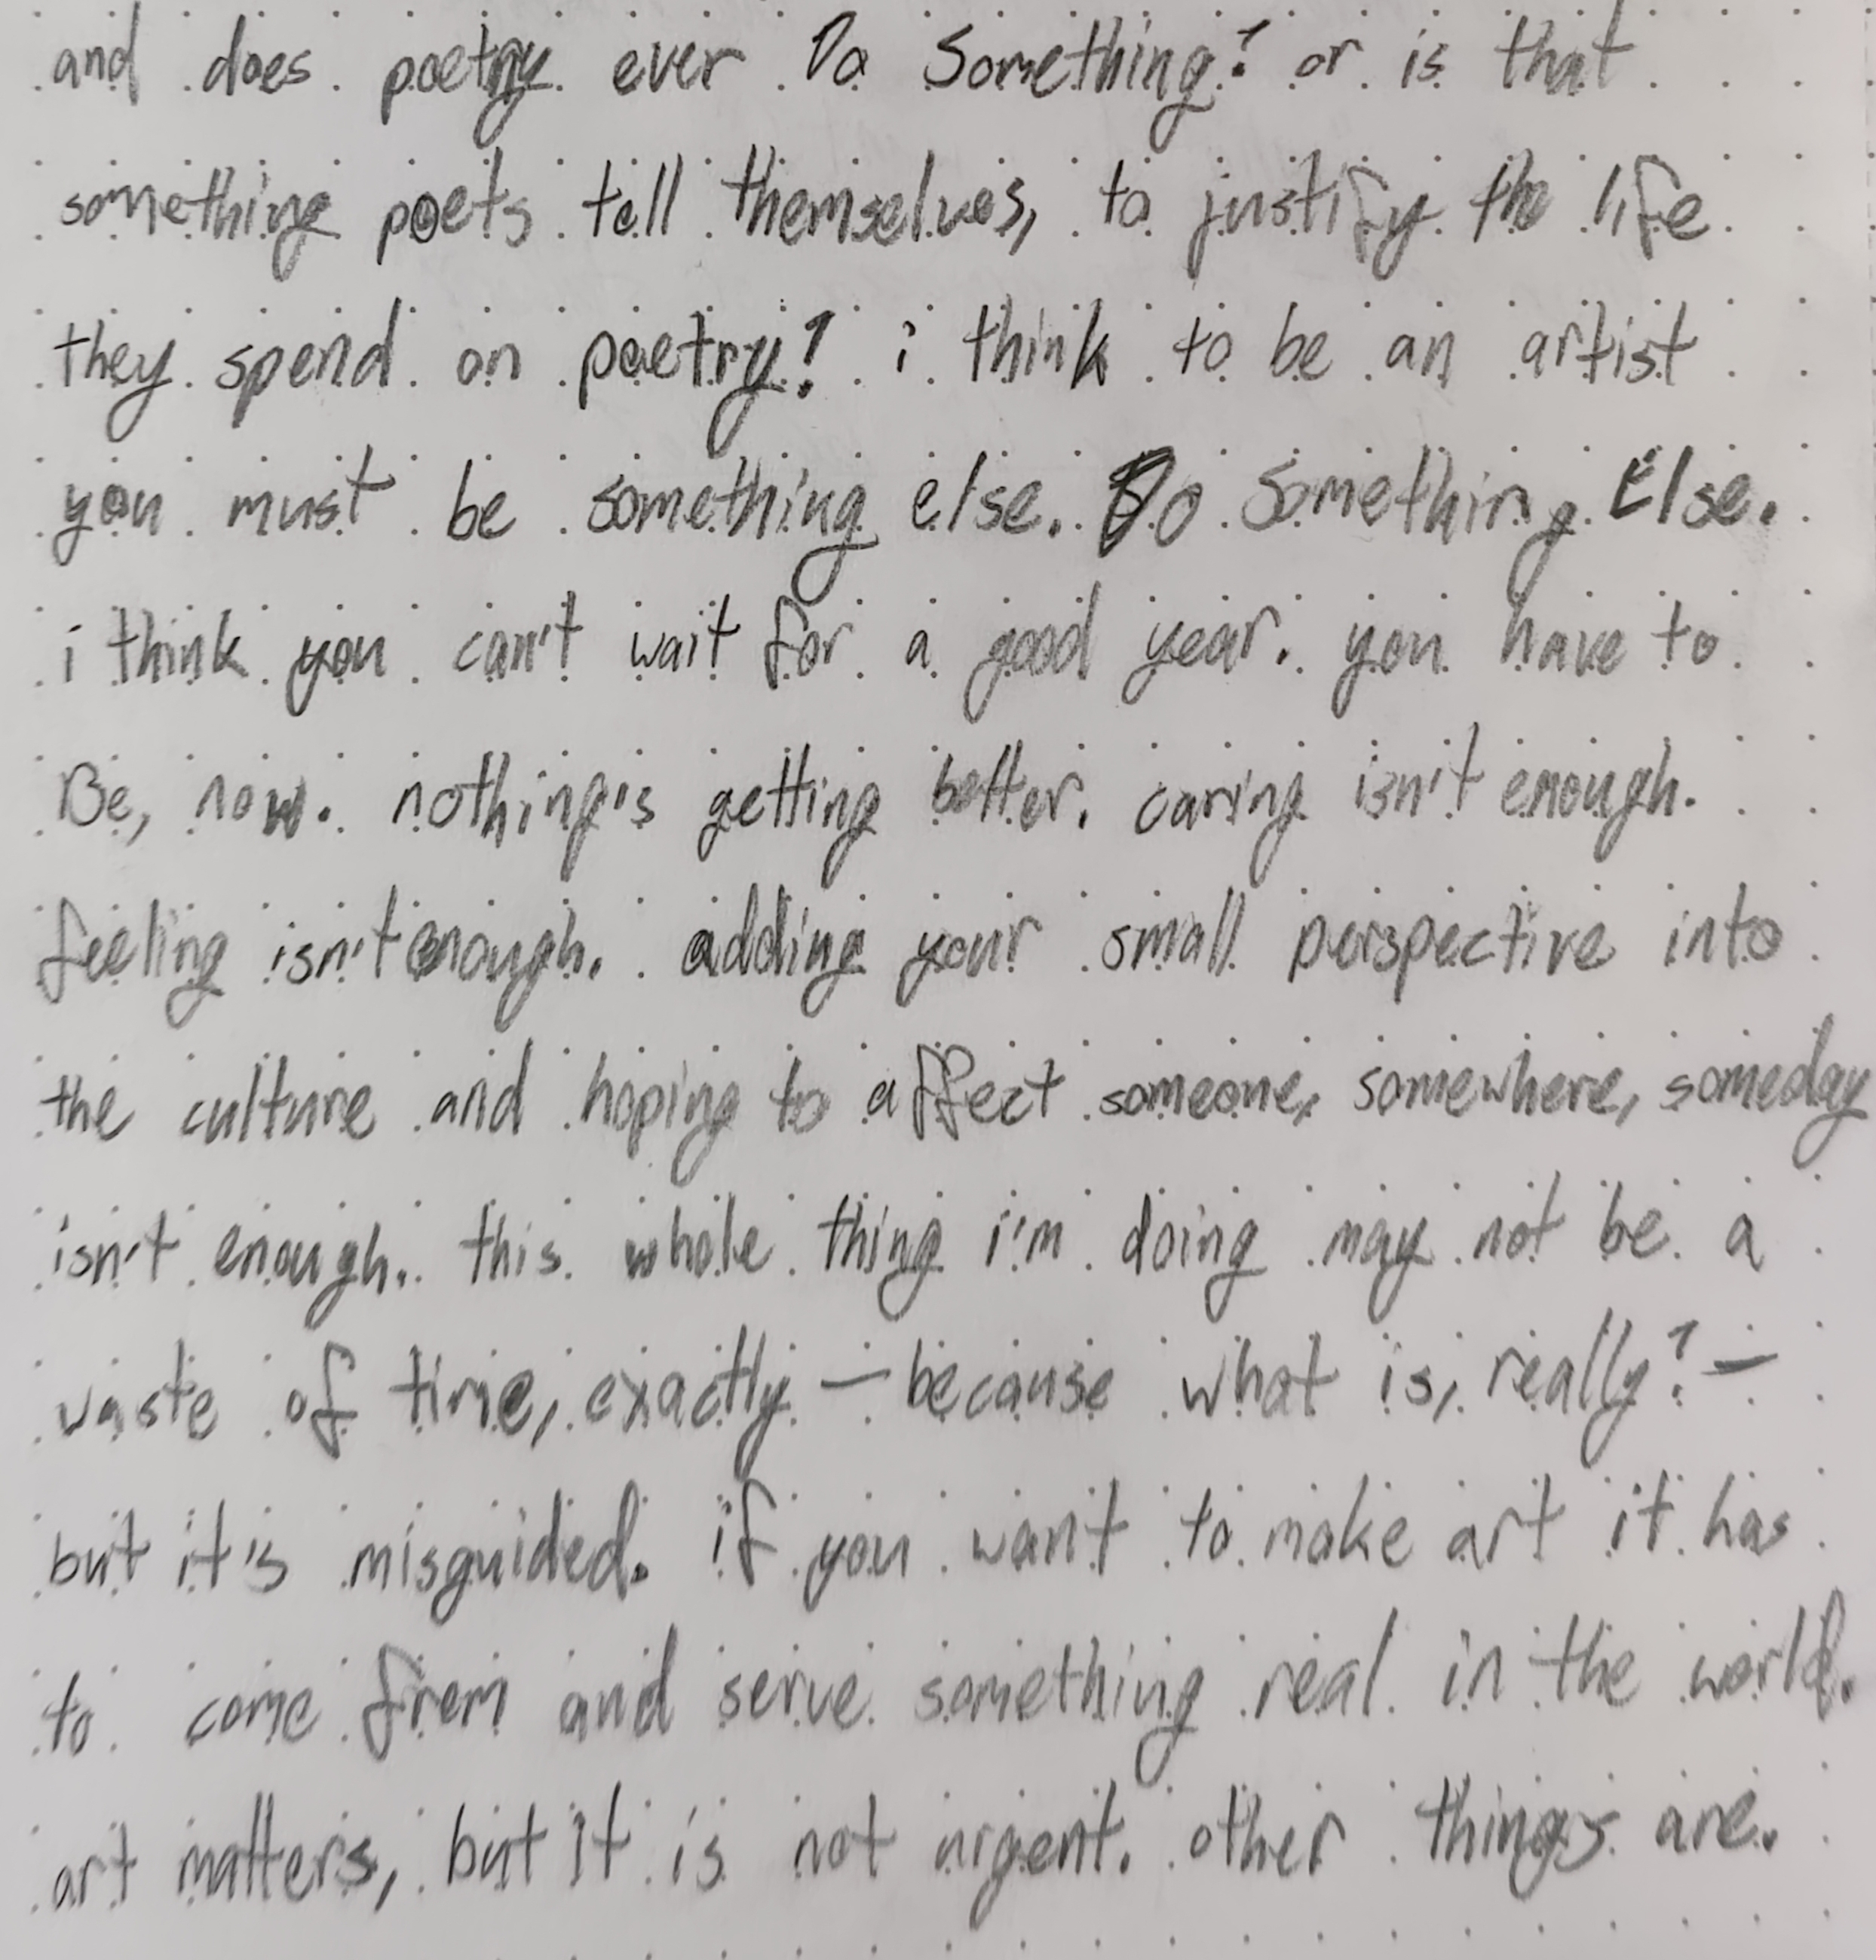 and does poetry ever Do Something? or is that
something poets tell themselves, to justify the life
they spend on poetry? i think to be an artist
you must be something else. Do Something Else.
i think you can't wait for a good year. you have to
Be, now. nothing's getting better. caring isn't enough.
feeling isn't enough. adding your small perspective into
the culture and hoping to affect someone, somewhere, someday
isn't enough. this whole thing i'm doing may not be a
waste of time, exactly — because what is, really? —
but it's misguided. if you want to make art it has
to come from and serve something real in the world.
art matters, but it is not urgent. other things are.